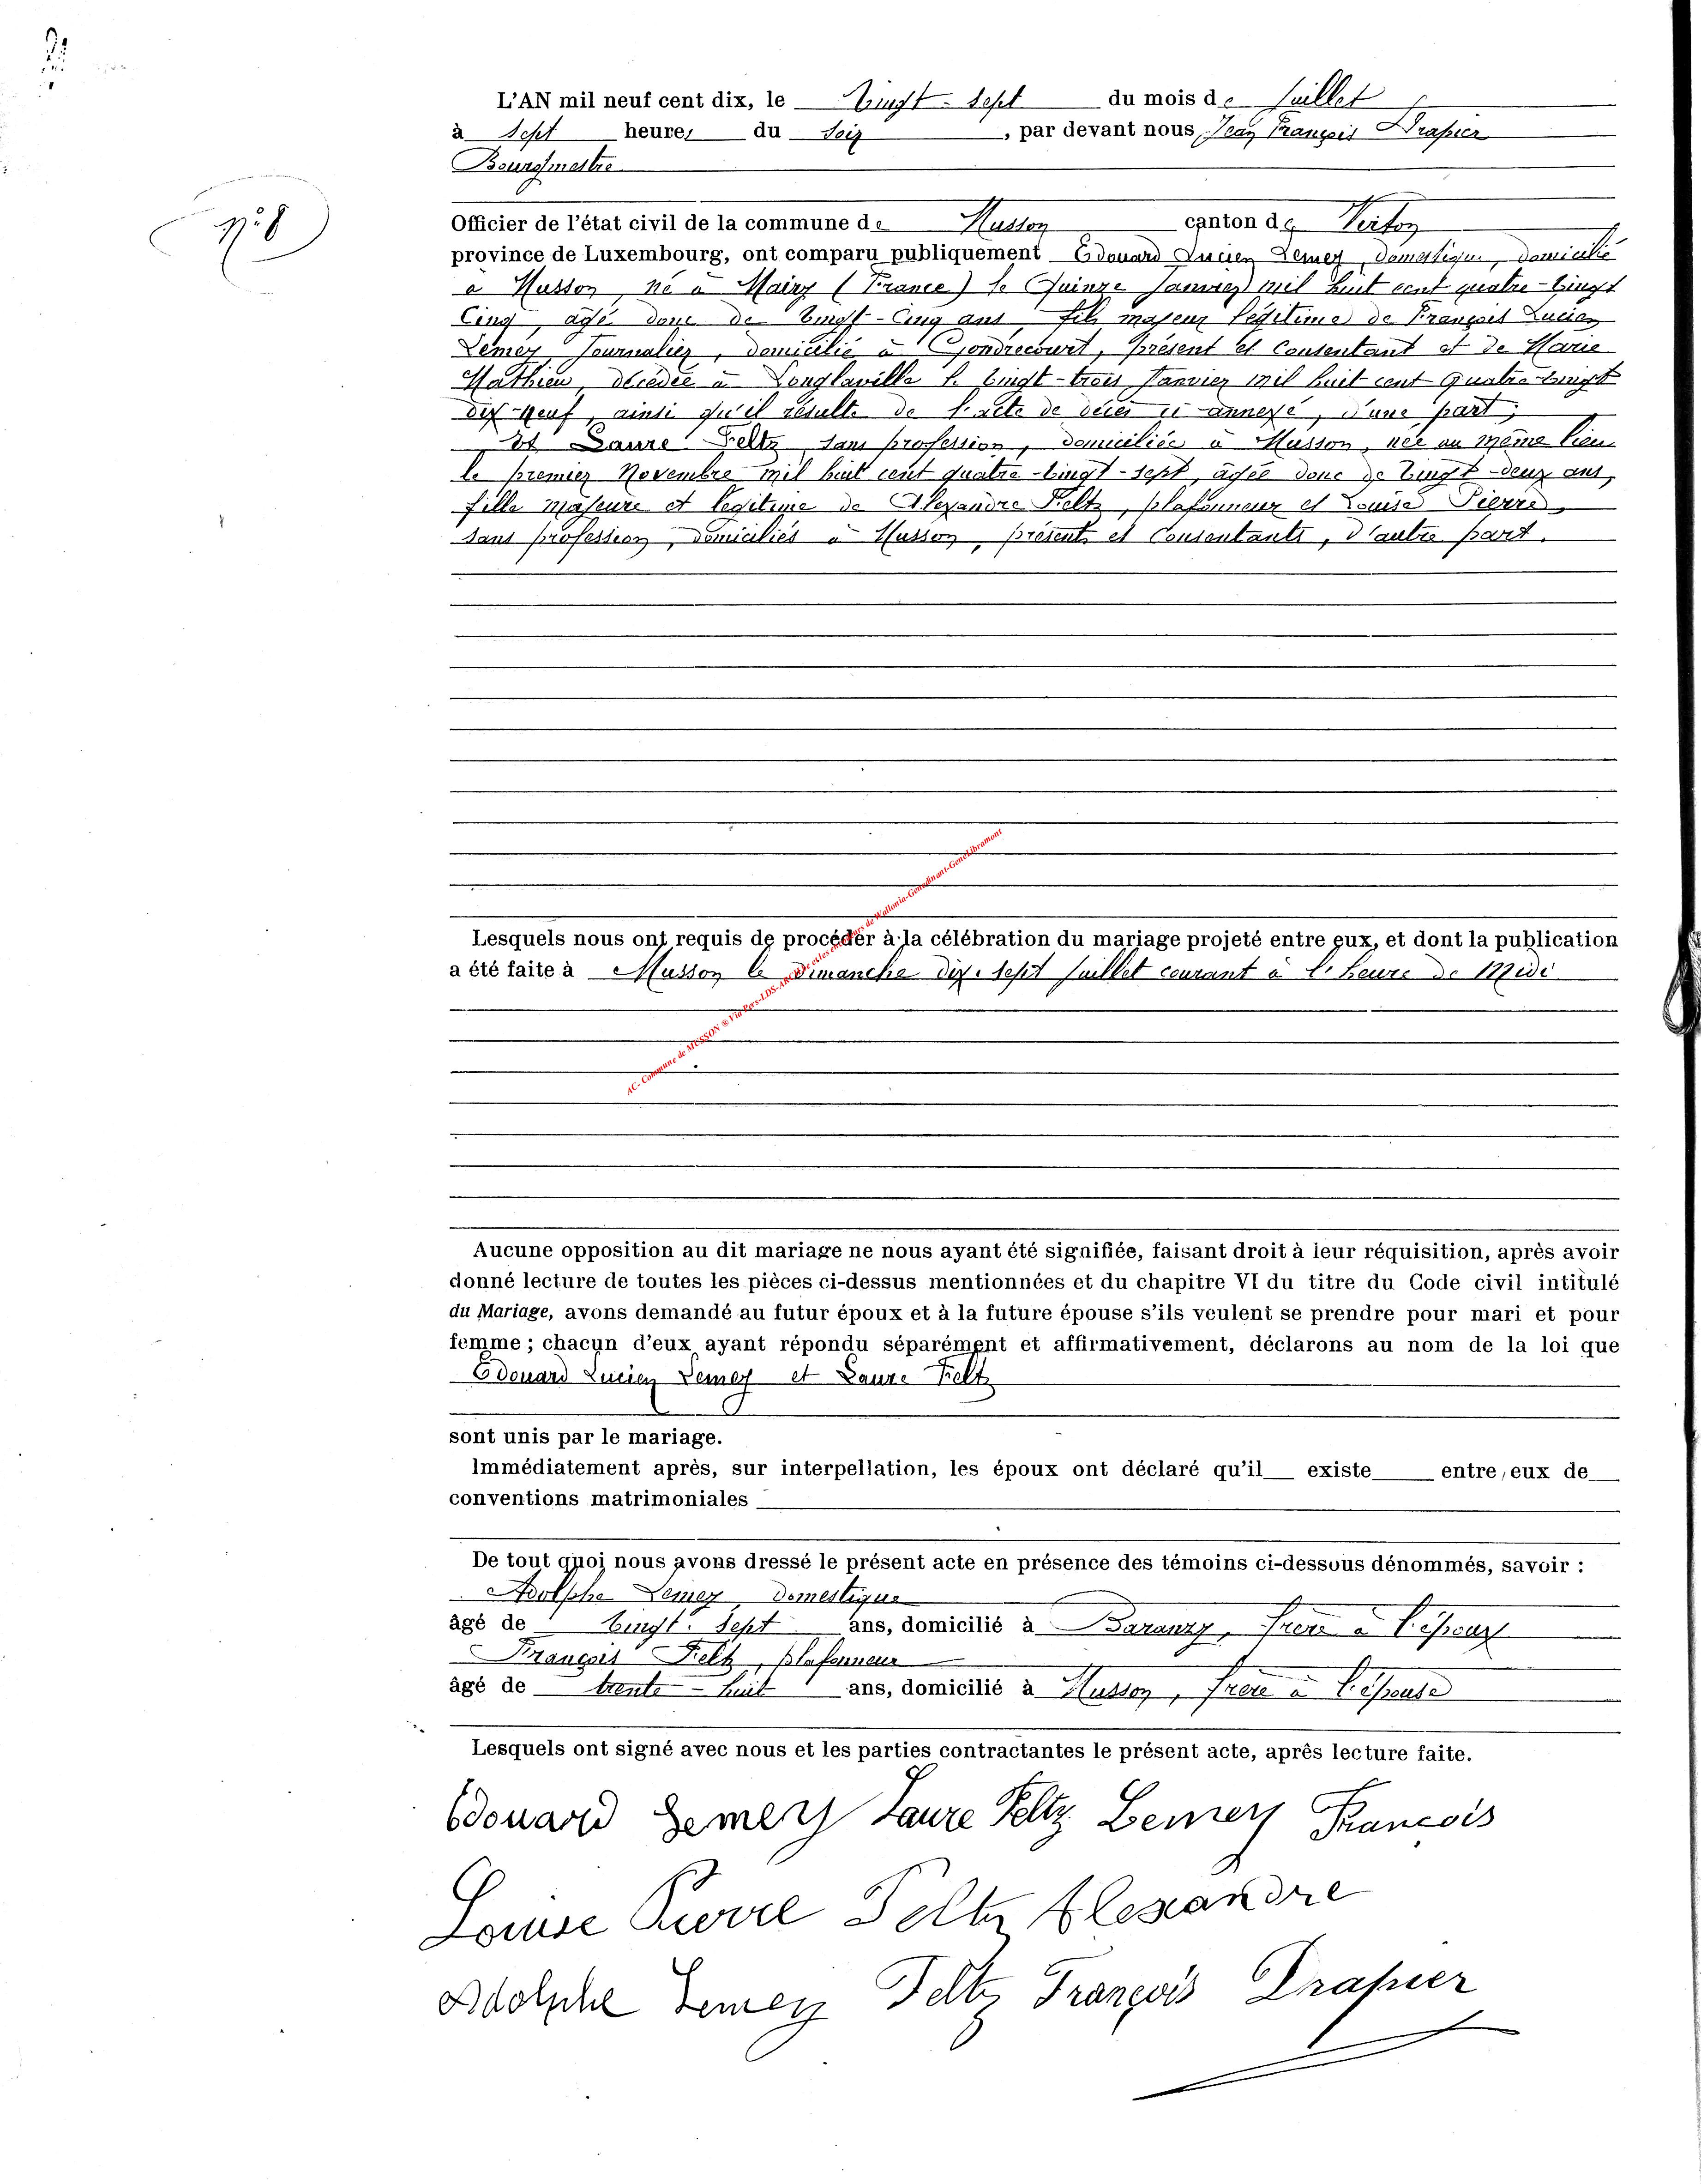 N° 8
L'AN mil neuf cent dix, le Vingt-Sept du mois de Juillet
à Sept heures du Soir, par devant nous, Jean François Drapier
Bourgmestre
Officier de l'état civil de la commune de Musson canton de Virton
province de Luxembourg, ont comparu publiquement Edouard Lucien Lemey, domestique, domicilié
à Musson, né à Mairy (France) le Quinze Janvier mil huit cent quatre-vingt
Cinq, âgé donc de Vingt-Cinq ans, fils majeur légitime de François Lucien
Lemey, Journalier, domicilié à Gondrecourt, présent et Consentant et de Marie
Mathieu, décédée à Longlaville le vingt-trois Janvier mil huit cent Quatre-vingt
dix-neuf, ainsi qu'il résulte de l'acte de décès ci-annexé, d'une part;
Et Laure Feltz, sans profession, domiciliée à Musson, née au même lieu
le premier Novembre mil huit cent quatre-vingt-sept, âgée donc de Vingt-deux ans,
fille majeure et légitime de Alexandre Feltz, plafonneur et Louise Pierre,
sans profession, domiciliés à Musson, présents et Consentants, d'autre part.
Lesquels nous ont requis de procéder à la célébration du mariage projeté entre eux, et dont la publication
a été faite à Musson le Dimanche dix-sept Juillet courant à l'heure de Midi
AC- Commune de MUSSON ® Via Pers-LDS- de Wallonia-Genedinant-GeneLibramont
Aucune opposition au dit mariage ne nous ayant été signifiée, faisant droit à leur réquisition, après avoir
donné lecture de toutes les pièces ci-dessus mentionnées et du chapitre VI du titre du Code civil intitulé
du Mariage, avons demandé au futur époux et à la future épouse s'ils veulent se prendre pour mari et pour
femme ; chacun d'eux ayant répondu séparément et affirmativement, déclarons au nom de la loi que
Edouard Lucien Lemey et Laure Feltz
sont unis par le mariage.
Immédiatement après, sur interpellation, les époux ont déclaré qu'il existe entre eux de
conventions matrimoniales
De tout quoi nous avons dressé le présent acte en présence des témoins ci-dessous dénommés, savoir :
Adolphe Lemey, Domestique
âgé de Vingt-Sept ans, domicilié à Baranzy, frère à l'époux
François Feltz, plafonneur
âgé de trente-huit ans, domicilié à Musson, frère à l'épouse
Lesquels ont signé avec nous et les parties contractantes le présent acte, après lecture faite.
Edouard Lemey Laure Feltz Lemey Francois
Louise Pierre Feltz Alexandre
Adolphe Lemey Feltz François Drapier